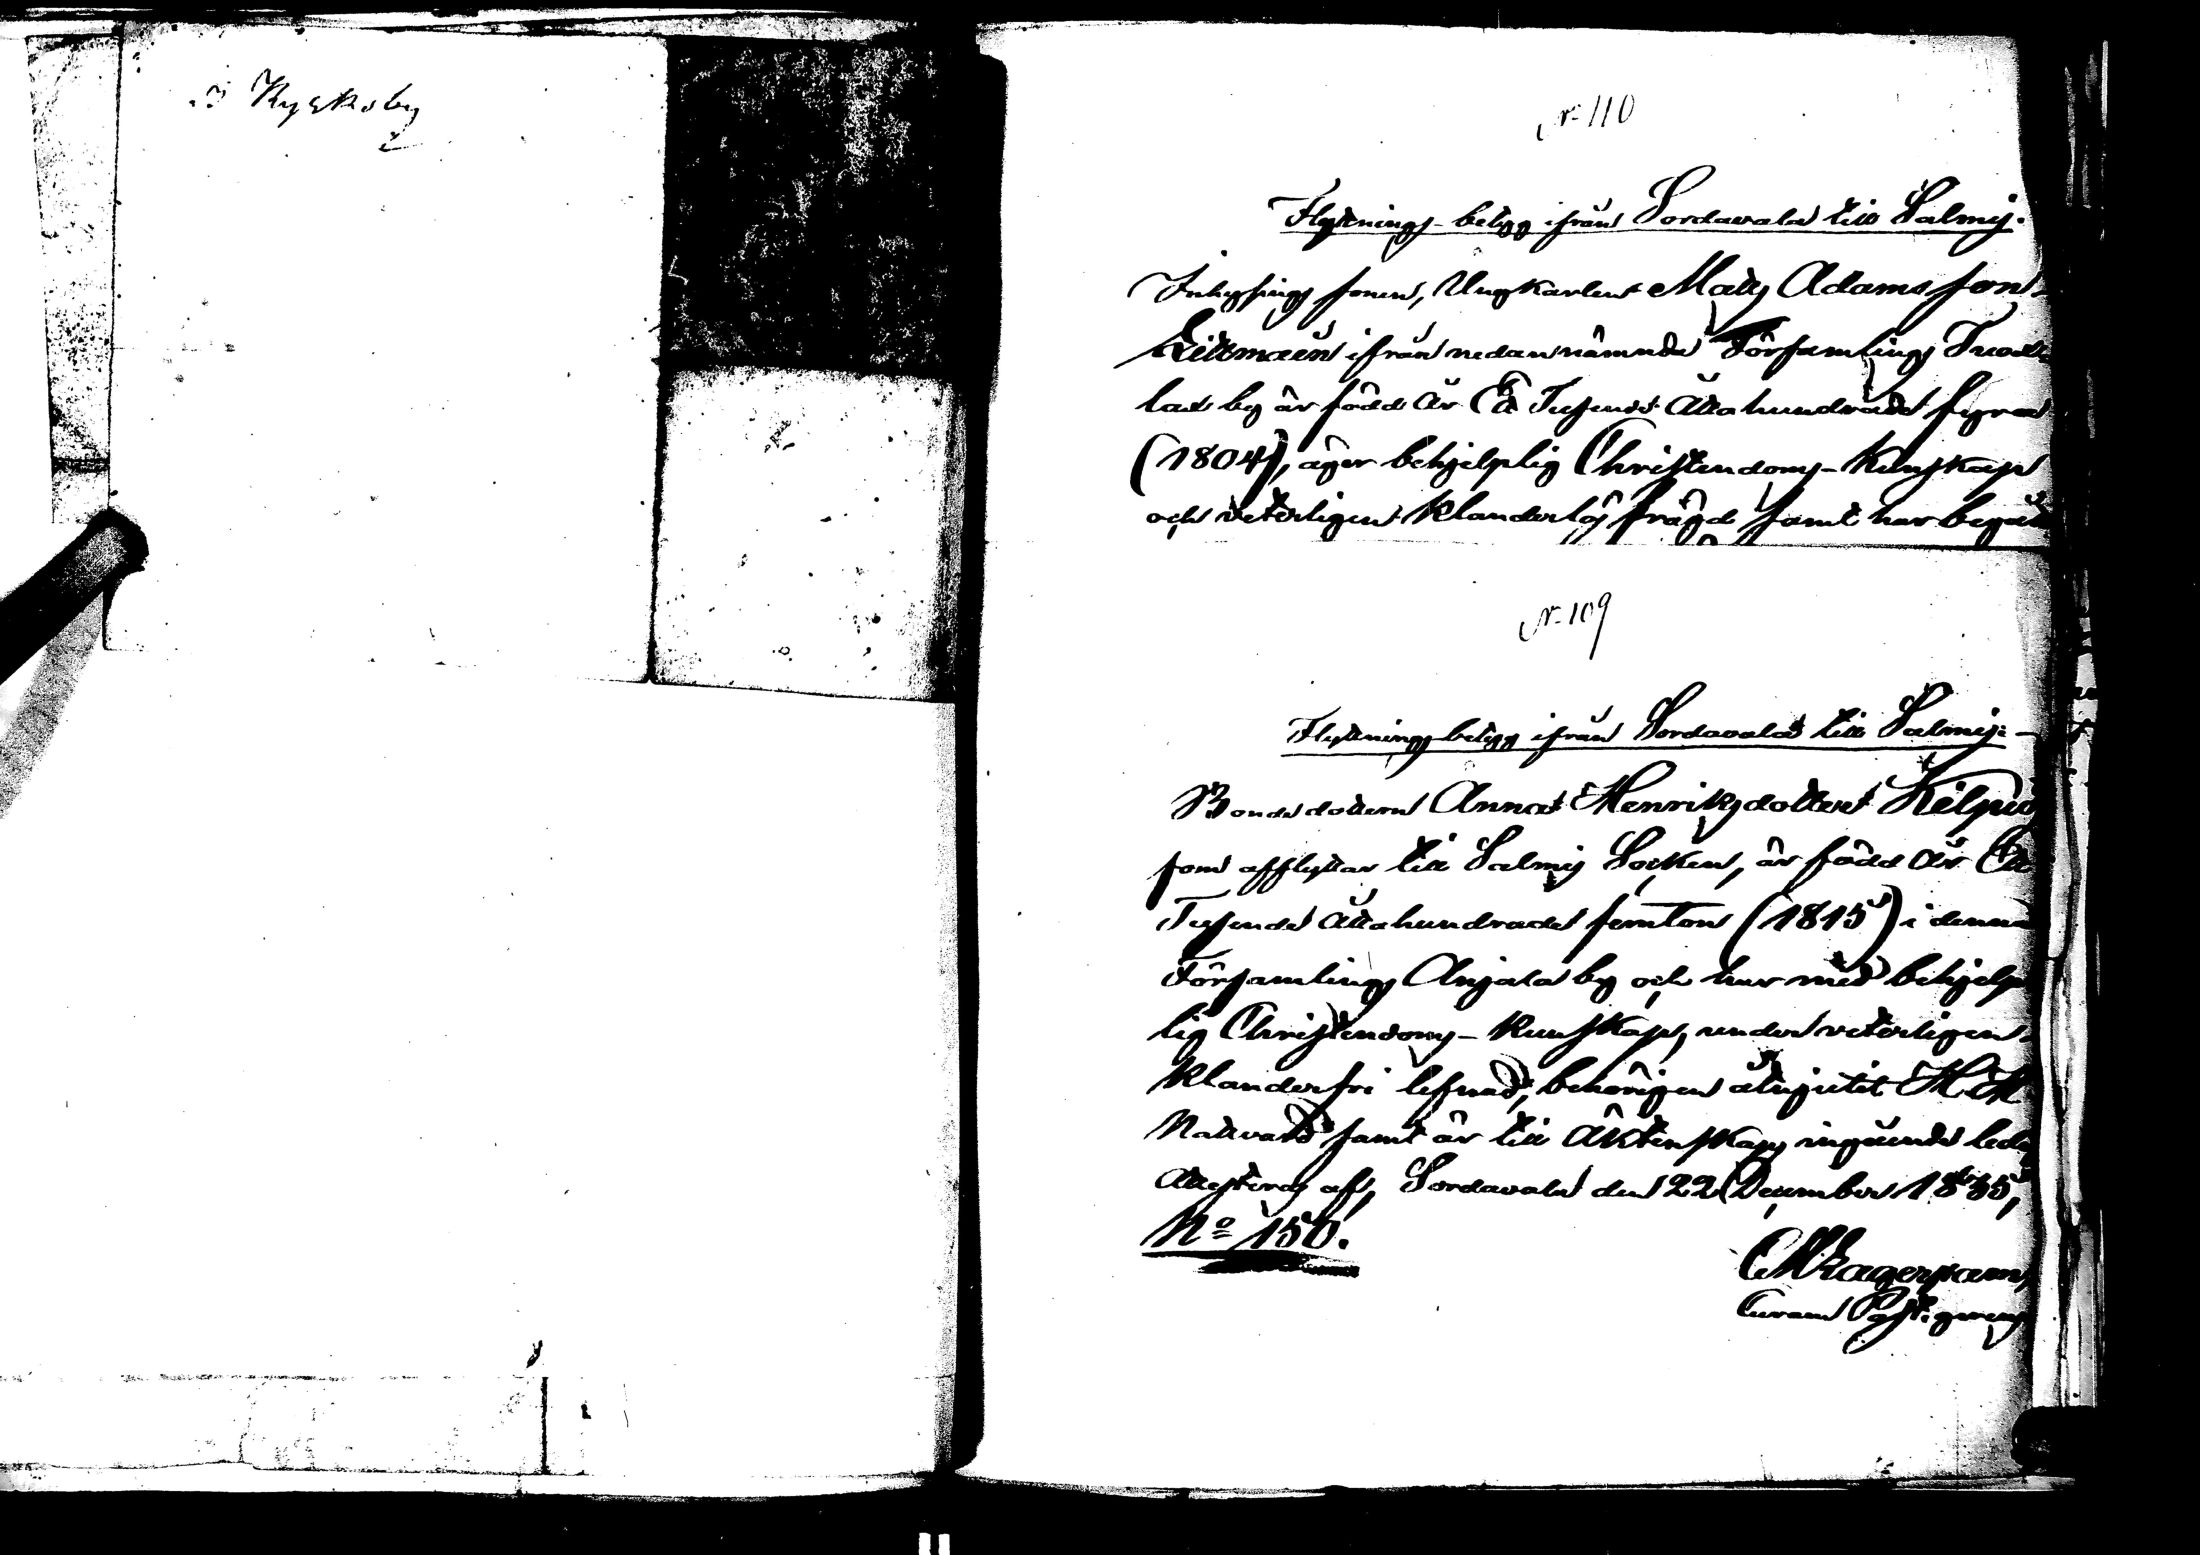 Kyrkoby
N 110
Flyttnings-betyg ifrån Sordavala till Salmis.
Inhysings sonen, Ungkarlen Matts Adamsson
ifrån nedannämnde Församlings
la by är född år Ett Tusende Åttahundrade fyra
(1804), äger behjelplig Christendoms-Kunskap
och veterligen klanderlös frägd samt har begått
N 109
Flyttningsbetyg ifrån Sordavala till Salmis.
Bondedottern Anna Henriksdotter Kilpiö
som afflyttar till Salmis Socken, är född år Ett
Tusende Åttahundrade femton (1815) i denna
Församlings Anjala by och har med behjelp
lig Christendoms-Kunskap, under veterligen
klanderfri lefnad, behörigen åtnjutit H. H.
Nattvard samt är till Äktenskaps ingående ledig
Attesteras af, Sordavala den 22 December 1835,
No 150.